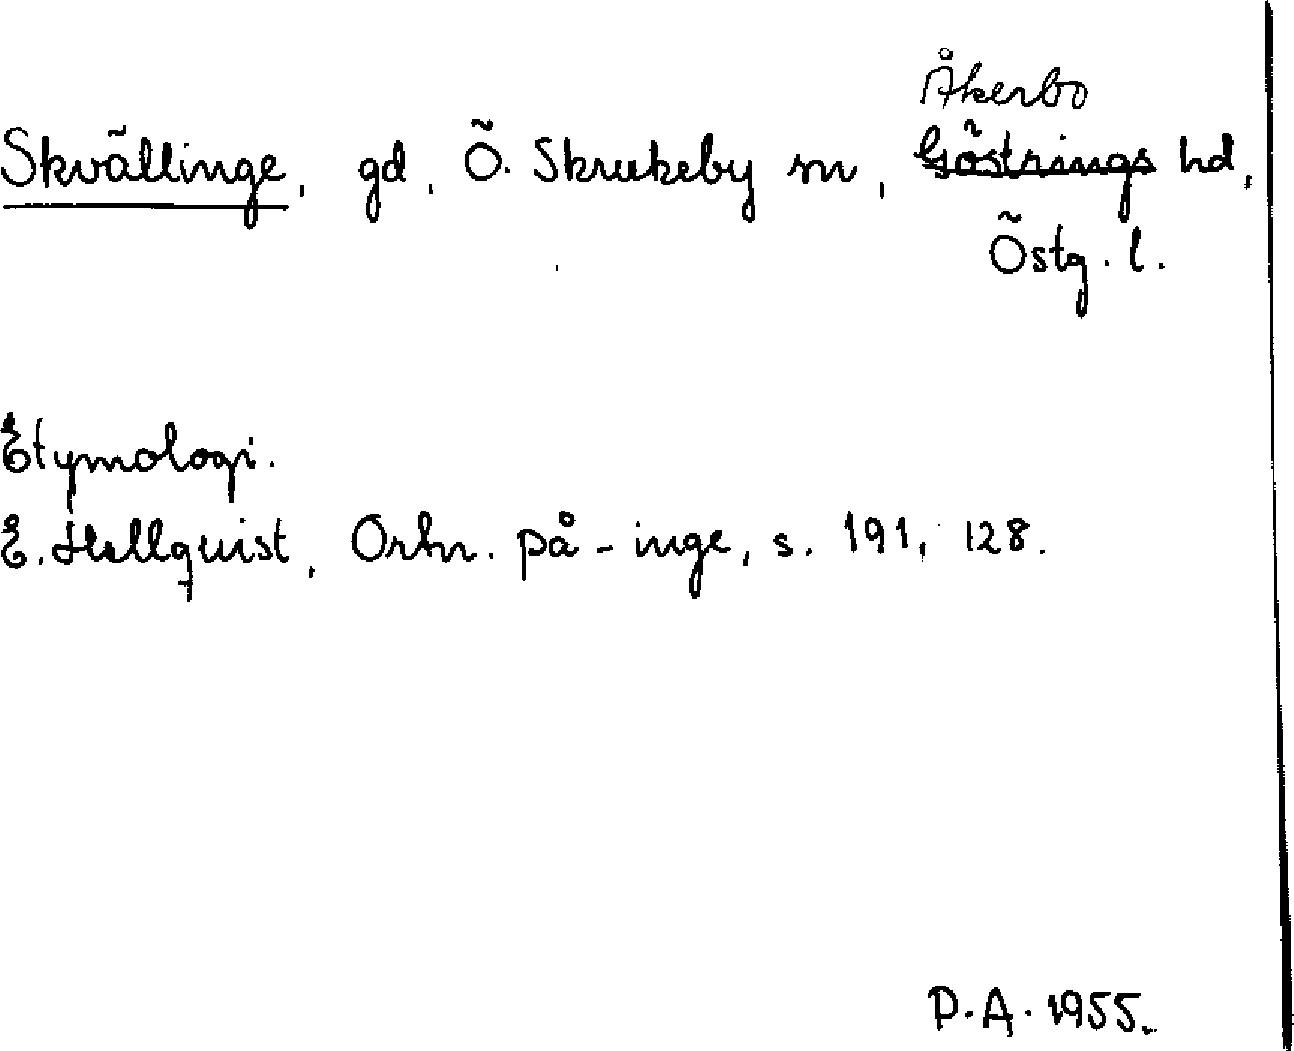 Åkerbo
Skvällinge, gd, Ö. Skrukeby sn, Göstrings hd,
Östg. l.
Etymologi.
E. Hellquist, Ortn. på -inge, s. 191, 128.
P.A. 1955.